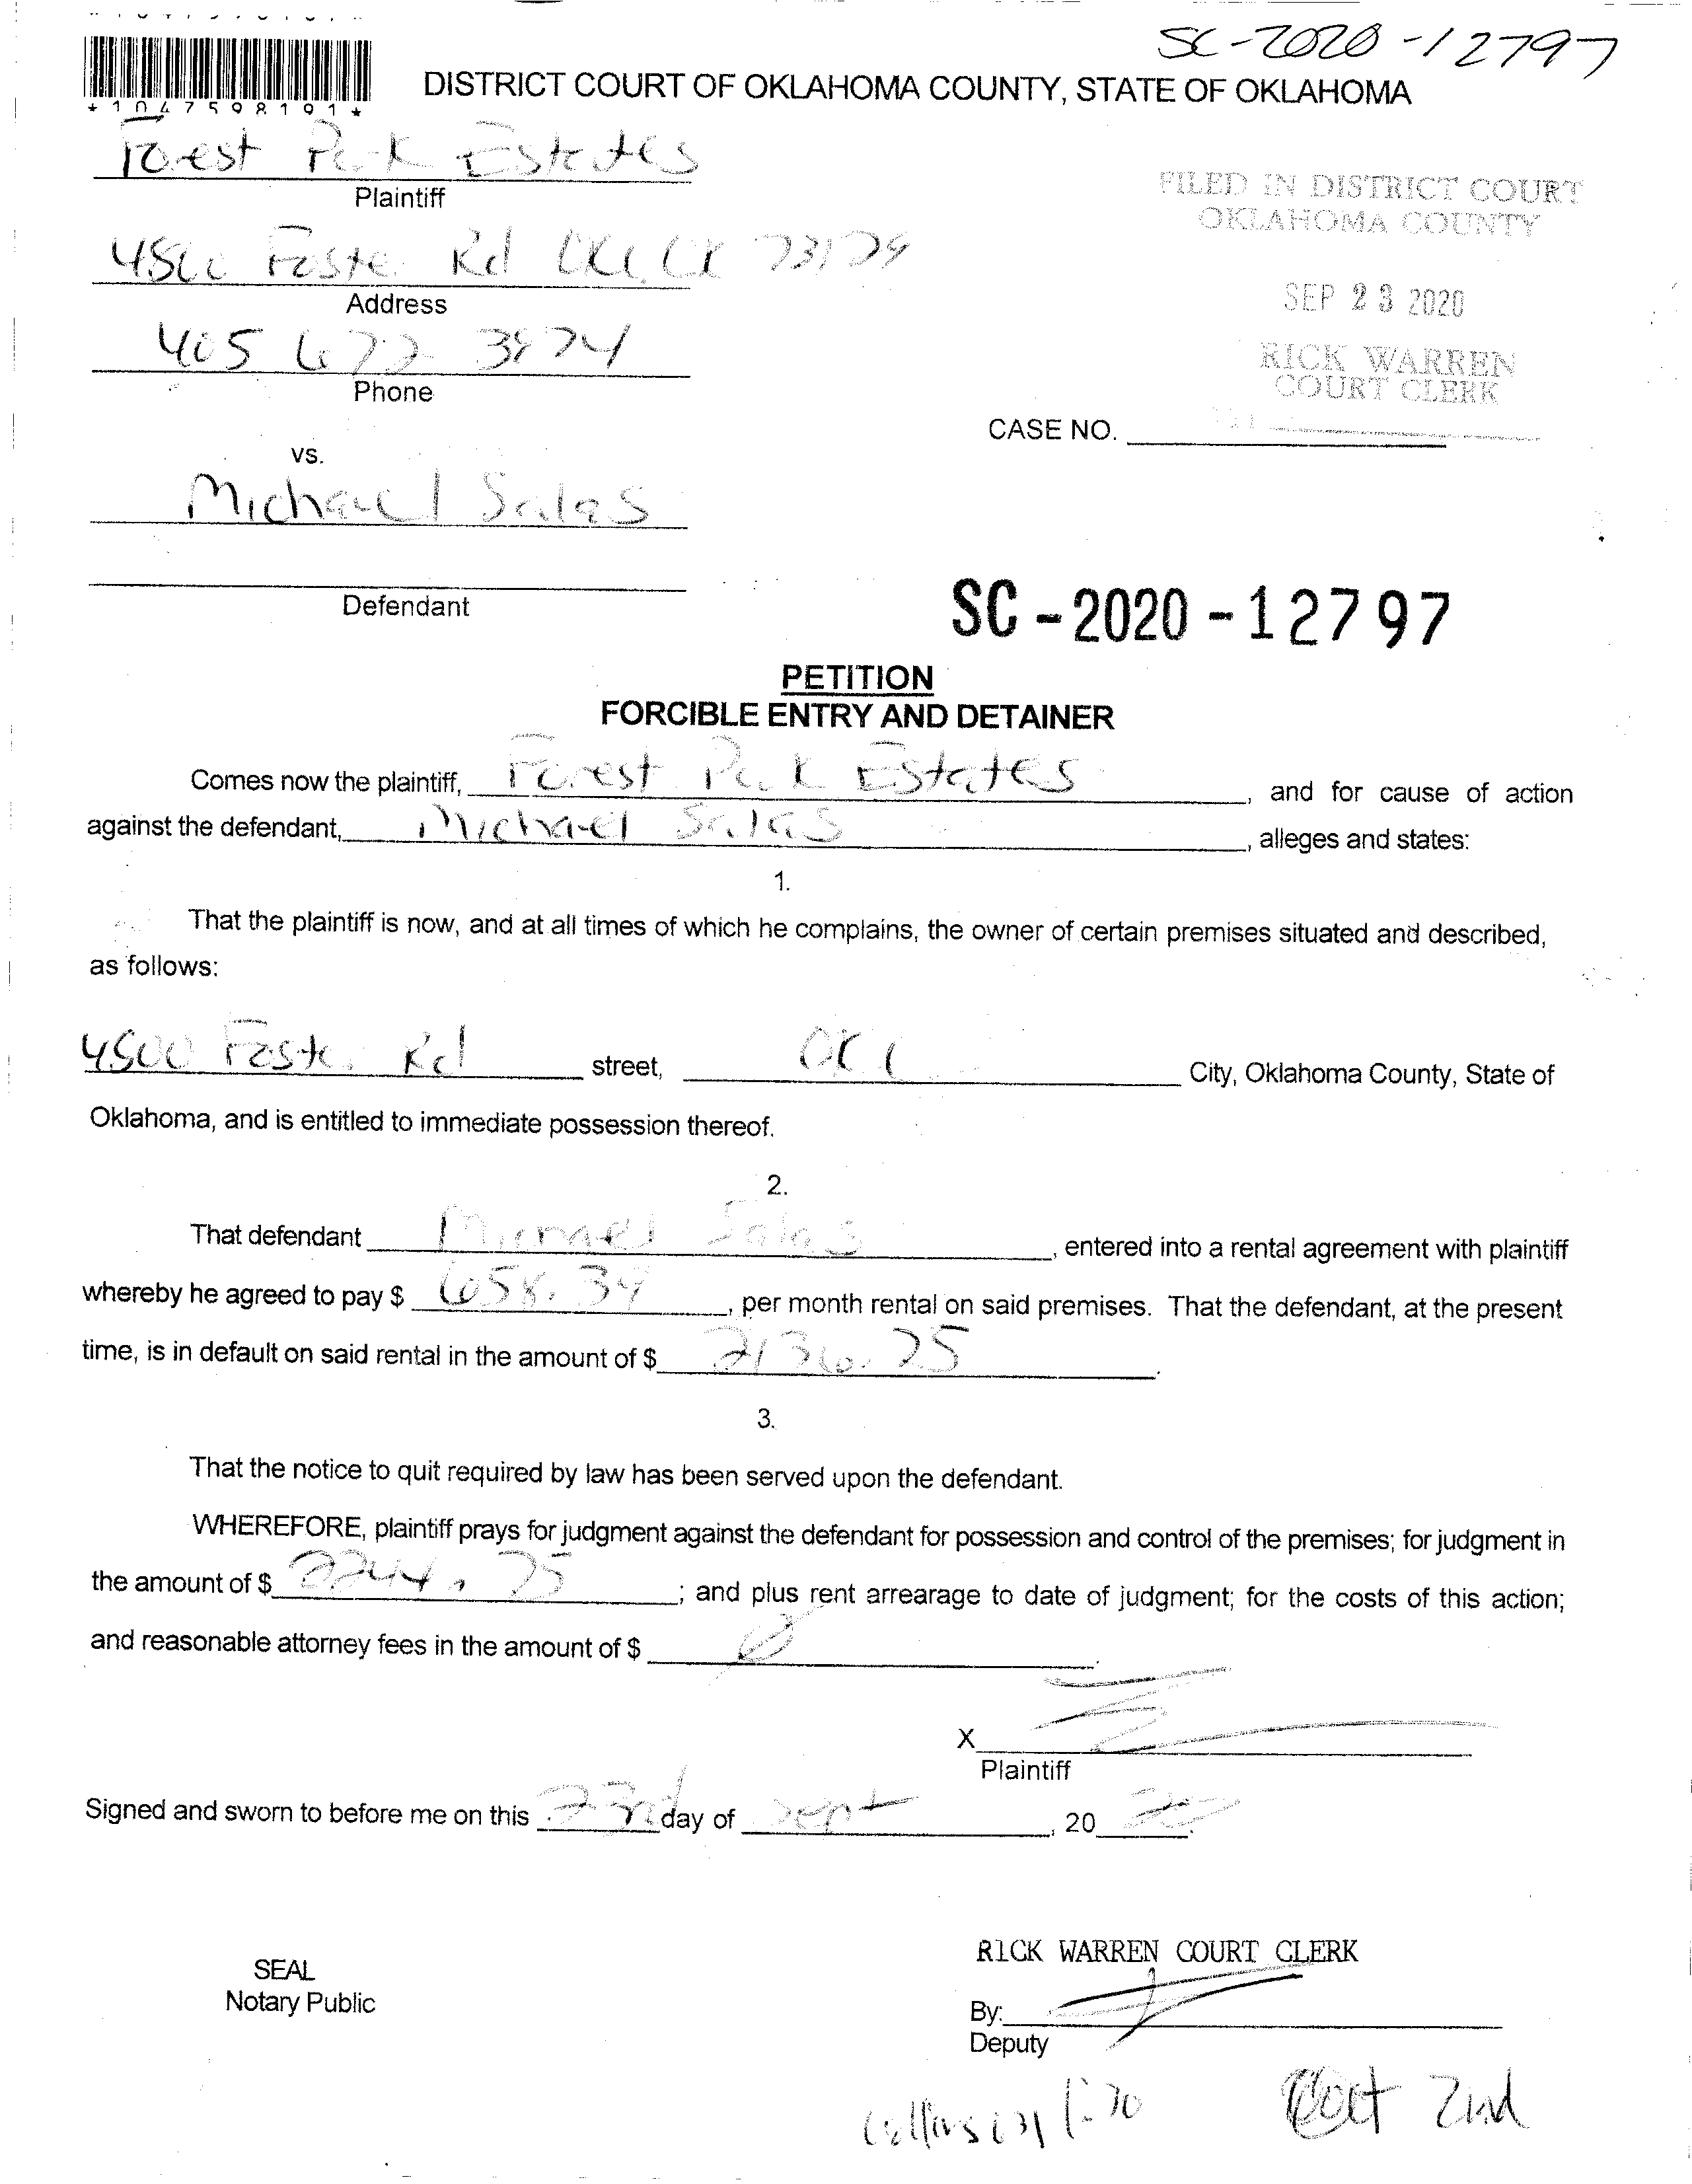 SC-2020-12797
*1047598191*
DISTRICT COURT OF OKLAHOMA COUNTY, STATE OF OKLAHOMA
Forest Park Estates
Plaintiff
FILED IN DISTRICT COURT
OKLAHOMA COUNTY
4500 Foster Rd OKC OK 73129
SEP 23 2020
Address
405 672 3874
RICK WARREN
COURT CLERK
Phone
CASE NO.
vs.
Michael Salas
Defendant
SC-2020-12797
PETITION
FORCIBLE ENTRY AND DETAINER
Comes now the plaintiff, Forest Park Estates, and for cause of action
against the defendant, Michael Salas, alleges and states:
1.
That the plaintiff is now, and at all times of which he complains, the owner of certain premises situated and described,
as follows:
4500 Foster Rd street, OKC City, Oklahoma County, State of
Oklahoma, and is entitled to immediate possession thereof.
2.
That defendant Michael Salas, entered into a rental agreement with plaintiff
whereby he agreed to pay $ 658.34, per month rental on said premises. That the defendant, at the present
time, is in default on said rental in the amount of $ 2136.25.
3.
That the notice to quit required by law has been served upon the defendant.
WHEREFORE, plaintiff prays for judgment against the defendant for possession and control of the premises; for judgment in
the amount of $ 2244.25; and plus rent arrearage to date of judgment; for the costs of this action;
and reasonable attorney fees in the amount of $ 0.
X
Plaintiff
Signed and sworn to before me on this 23rd day of Sept, 20 20.
SEAL
Notary Public
RICK WARREN COURT CLERK
By:
Deputy
Collins 131 1:30 Oct 2nd